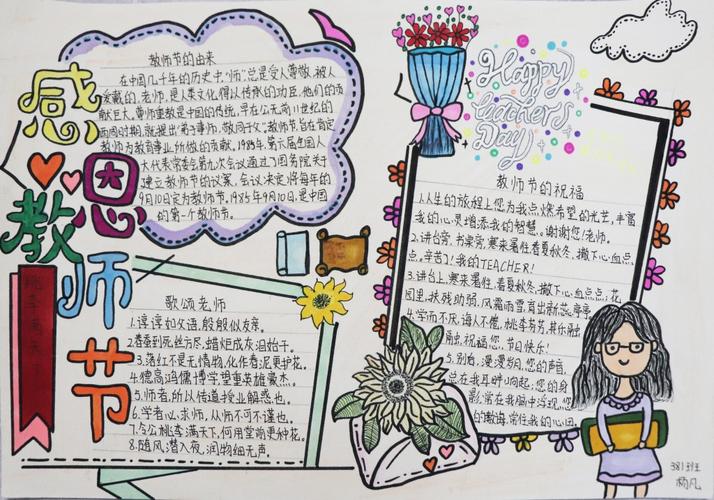 感恩教师节
桃李满天下
教师节的由来
在中国几千年的历史中,"师"总是受人尊敬,被人
爱戴的,老师,是人类文化得以传承的功臣,他们的贡
献巨大,尊师重教是中国的传统,早在公元前11世纪的
西周时期,就提出"弟子事师,敬同于父"教师节旨在肯定
教师为教育事业所做的贡献,1985年,第六届全国人
大代表常委会第九次会议通过了国务院关于
建立教师节的议案,会议决定将每年的
9月10日定为教师节,1985年9月10日,是中国
的第一个教师节。
歌颂老师
1.谆谆如父语,殷殷似友亲。
2.春蚕到死丝方尽,蜡炬成灰泪始干。
3.落红不是无情物,化作春泥更护花。
4.德高鸿儒博学,望重英雄豪杰。
5.师者,所以传道授业解惑也。
6.学者必求师,从师不可不谨也。
7.令公桃李满天下,何用堂前更种花。
8.随风潜入夜,润物细无声。
Happy
teacher's
Day
教师节的祝福
1.人生的旅程上您为我点燃希望的光芒,丰富
我的心灵增添我的智慧。谢谢您!老师。
2.讲台旁,书桌旁,寒来暑往,春夏秋冬,撒下心血点
点,辛苦了!我的TEACHER!
3.讲台上,寒来暑往,春夏秋冬,撒下心血点点;花
园里,扶残助弱,风霜雨雪,育出新蕊亭亭
4.学而不厌,诲人不倦,桃李芬芳,其乐融
融,祝福您,节日快乐!
5.别后,漫漫岁月,您的声音,
总在我耳畔响起;您的身
影,常在我脑中浮现,您
的教诲,常在我的心田。
381班
杨凡